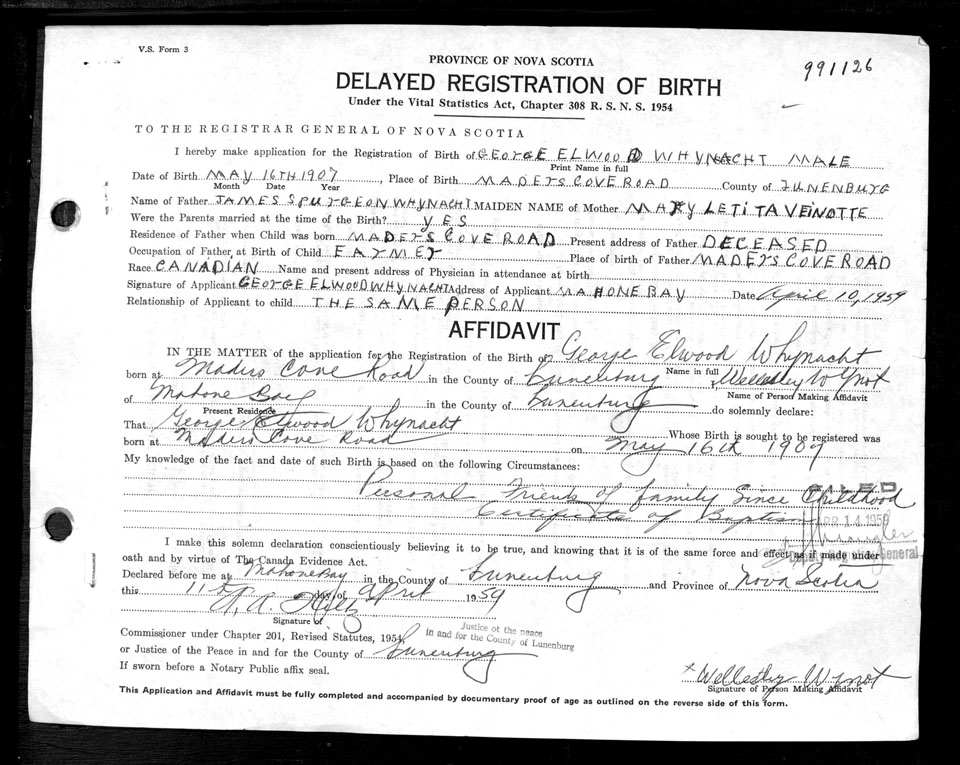 V.S. Form 3
991126
PROVINCE OF NOVA SCOTIA
DELAYED REGISTRATION OF BIRTH
Under the Vital Statistics Act, Chapter 308 R. S. N. S. 1954
TO THE REGISTRAR GENERAL OF NOVA SCOTIA
I hereby make application for the Registration of Birth of GEORGE ELWOOD WHYNACHT MALE
Print Name in full
Date of Birth MAY 16TH 1907, Place of Birth MADERS COVE ROAD County of LUNENBURG
Month Date Year
Name of Father JAMES SPURGEON WHYNACHT MAIDEN NAME of Mother MARY LETITA VEINOTTE
Were the Parents married at the time of the Birth? YES
Residence of Father when Child was born MADERS COVE ROAD Present address of Father DECEASED
Occupation of Father at Birth of Child FARMER Place of birth of Father MADERS COVE ROAD
Race CANADIAN Name and present address of Physician in attendance at birth
Signature of Applicant GEORGE ELWOOD WHYNACHT Address of Applicant MAHONE BAY Date April 10, 1959
Relationship of Applicant to child THE SAME PERSON
AFFIDAVIT
IN THE MATTER of the application for the Registration of the Birth of George Elwood Whynacht
Name in full
born at Maders Cove Road in the County of Lunenburg I, Wellesley Wynot
Name of Person Making Affidavit
of Mahone Bay in the County of Lunenburg do solemnly declare:
Present Residence
That George Elwood Whynacht Whose Birth is sought to be registered was
born at Maders Cove Road on May 16th 1909
My knowledge of the fact and date of such Birth is based on the following Circumstances:
Personal Friends of family Since Childhood
Certificate of Baptism
APR 14 1959
I make this solemn declaration conscientiously believing it to be true, and knowing that it is of the same force and effect as if made under
General
oath and by virtue of The Canada Evidence Act.
Declared before me at Mahone Bay in the County of Lunenburg and Province of Nova Scotia
this 11th day of April 1959
Signature of
Justice of the peace
in and for the County of Lunenburg
Commissioner under Chapter 201, Revised Statutes, 1954
or Justice of the Peace in and for the County of Lunenburg
If sworn before a Notary Public affix seal.
x Wellesley Wynot
Signature of Person Making Affidavit
This Application and Affidavit must be fully completed and accompanied by documentary proof of age as outlined on the reverse side of this form.